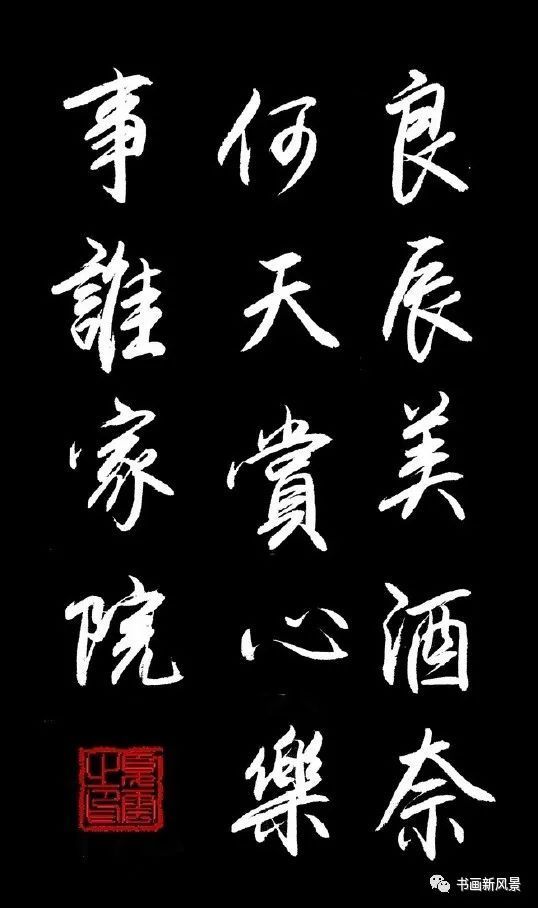 良辰美酒奈
何天賞心樂
事誰家院
之印
书画新风景